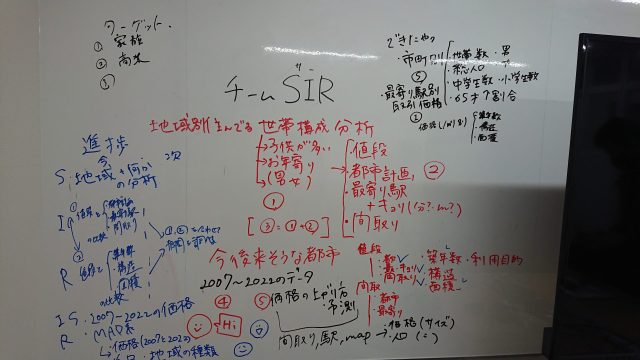 ターゲット
① 家族
② 高
③
チームSIR
ザー
できたやつ
市町別
世帯数・男
総人口
・中学生数・小学生数
・65才↑割合
⑤
・最寄り駅別
取引価格
価格(/㎡別)
築年数
構造
面積
地域別住んでる世帯構成分析
→子供が多い
→お年寄り
→(男女)
①
値段
都市計画
・最寄り駅
+キョリ(分?m?)
・間取り
②
[③=①+②]
進捗
今
S:地域+何か
の分析
次
I
値段と
間取り
の比較
R
値段と
築年数
構造
面積
の比較
IS:2007〜2022の価格
R:
今後来そうな都市
2007〜2022のデータ
④
Hi
⑤
価格の上がり方
・予測
間取り,駅,map→・価格(サイズ)
・人口(:)
値段
・築年数・利用目的
・構造
・面積
間取
・都市
・最寄り